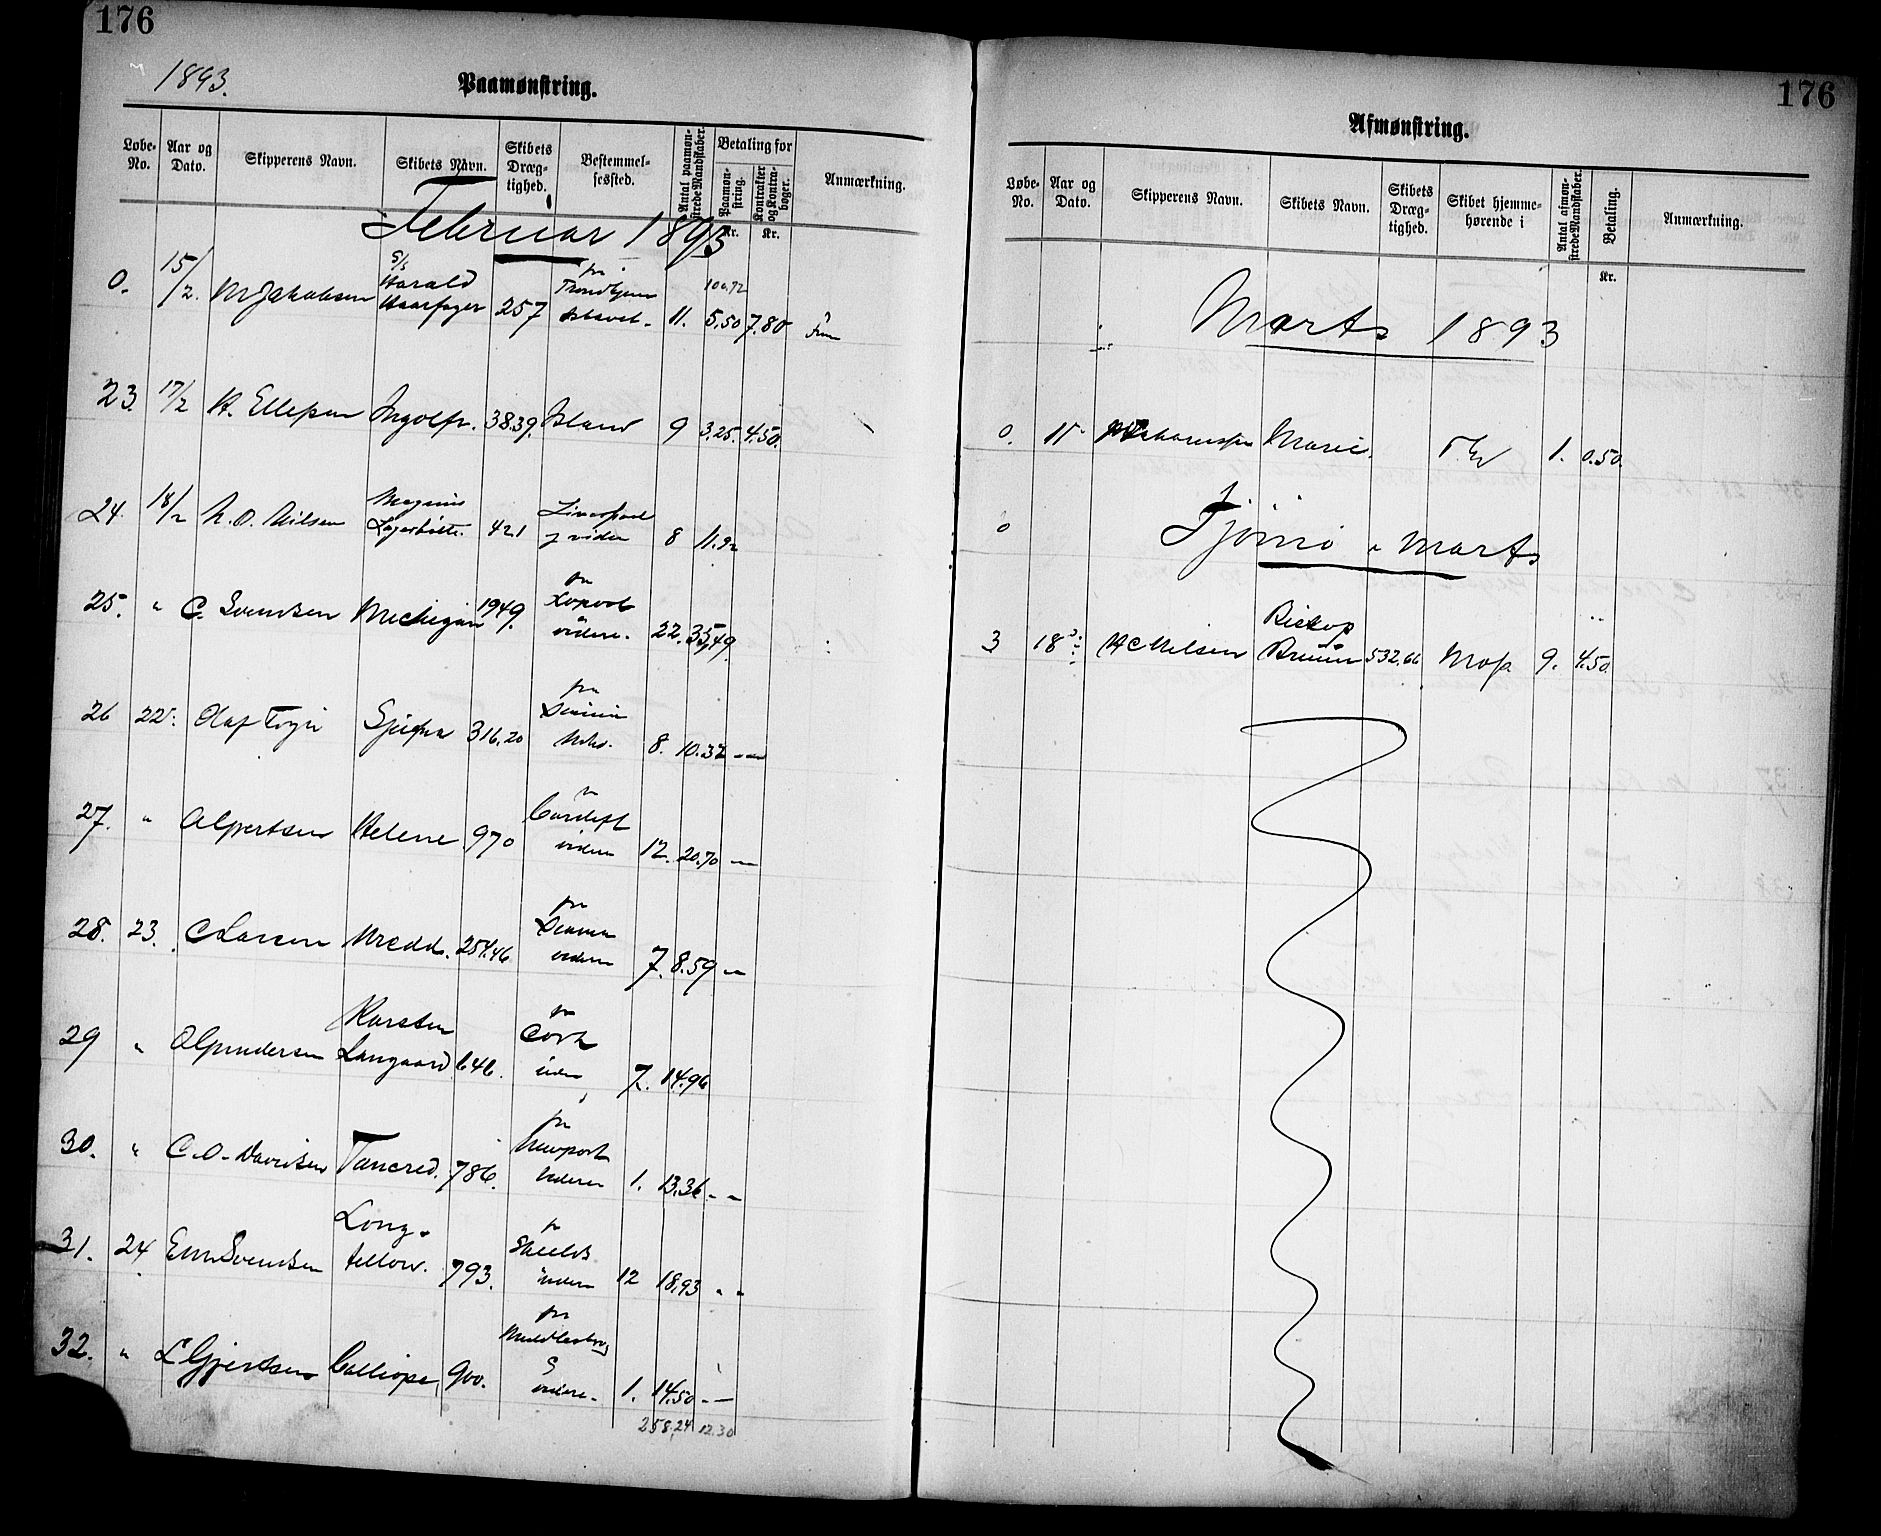 176
1893.
Paamønstring.
Løbe-No. Aar og Dato. Skipperens Navn. Skibets Navn. Skibets Dræg-tighed. Bestemmel-sessted. Antal paamøn-strede Mandskaber. Betaling for Paamøn-string. Kontrakter og Kontra-bøger. Anmærkning.
Februar 1893
Kr. Kr.
0. 15/2. M Jakobsen S/s Harald Haarfager 257 fra Trondhjem 11. 5,50 7.80
23. 17/2 H. Ellefsen Ingolfr. 38.39. Island 9 3.25. 4.50.
24. 18/2 N. O. Nilsen Magnus Lagerbøtte. 421 Liverpool videre 8 11.92
25. " C. Svendsen Mechigan 1949. fra videre. 22. 35,49
26 22. Olaf 316,20 fra 8. 10.32 —
27. " O Gjertsen Helene 970 Cardiff videre 12. 20.70 —
28. 23. C Larsen 254.46 fra videre 7. 8.59 —
29 " O Gundersen Karsten Langaard 646. fra Cork videre 7. 14.96
30. " C. O. Davidsen Tancred. 786. fra Newport videre 1. 13.36 - -
31. 24 Em Svendsen Long-fellow. 793. fra Shields videre 12 18,93 - -
32. " L Gjertsen Calliope 900. fra Middlesbro videre. 1. 14.50 - —
258,24 12.30
176
Afmønstring.
Løbe-No. Aar og Dato. Skipperens Navn. Skibets Navn. Skibets Dræg-tighed. Skibet hjemme-hørende i Antal afmøn-strede Mandskaber. Betaling. Anmærkning.
Kr.
Marts 1893
0. Marie. 1. 0.50.
0 Tjømø i Marts
3 18 H C Nilsen Biskop Bruun 532,66 Moss 9. 4.50.